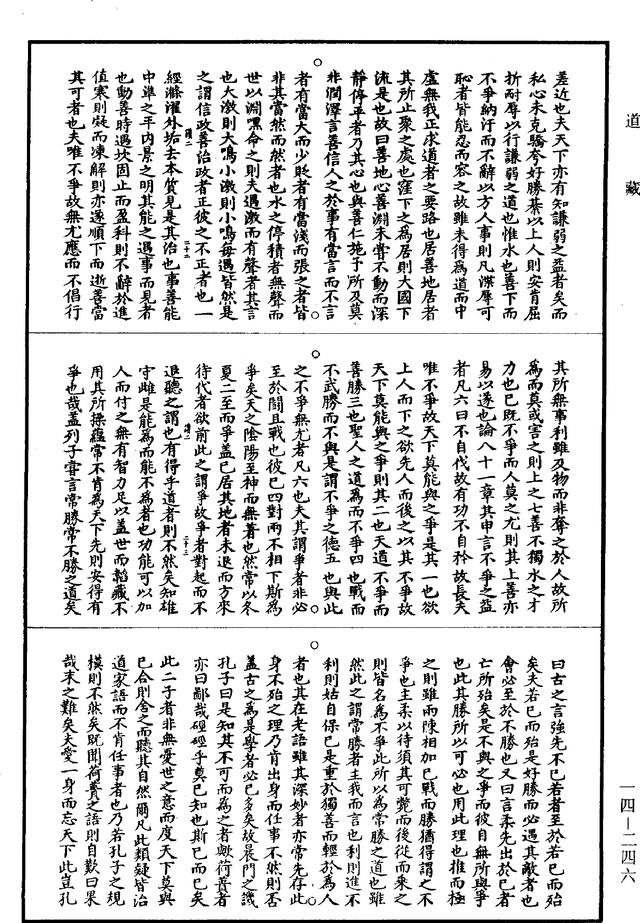 道藏
差近也夫天下亦有知謙弱之益者矣而
私心未克驕夸好勝蔡以上人則安肯屈
折耐辱以行謙弱之道也惟水也善下而
不爭納汙而不辭以方人事則凡滐辱可
恥者皆能忍而容之故雖未得為道而中
虛無我正求道者之要路也居善地居者
其所止聚之處也窪下之為居則大國下
流是也故曰善地心善淵未嘗不動而深
靜停平者乃其心也與善仁施予所及莫
非潤澤言善信人之於事有當言而不言
者有當大而少貶者有當淺而張之者皆
非其當然而然者也水之停積者無聲而
世以淵嘿命之則夫遇激而有聲者其言
也大激則大鳴小激則小鳴每遇皆然是
之謂信政善治政者正彼之不正者也一
經滌濯外垢去本質見是其治也事善能
中準之平內景之明其能之遇事而見者
也動善時遇坎固止而盈科則不辭於進
值寒則凝而凍解則亦遂順下而逝善當
其可者也夫唯不爭故無尤應而不倡行
其所無事利雖及物而非奪之於人故所
為而莫或害之則上之七善不獨水之才
力也已既不爭而人莫之尤則其上善亦
易以遂也論八十一章其申言不爭之益
者凡六曰不自伐故有功不自矜故長夫
唯不爭故天下莫能與之爭是其一也欲
上人而下之欲先人而後之以其不爭故
天下莫能與之爭則其二也天道不爭而
善勝三也聖人之道為而不爭四也戰而
不武勝而不與是謂不爭之德五也與此
之不爭無尤者凡六也夫其謂爭者非必
至於鬥且戰也彼已四對兩不相下斯為
爭矣天之陰陽至神而無著也然常以冬
夏二至而爭蓋已居其地者未退而方來
待代者欲前此之謂爭故爭者對起而不
退聽之謂也有得乎道者則不然矣知雄
守雌是能為而能不為者也功能可以加
人而付之無有智力足以蓋世而韜藏不
用其所操蘊常不肯為天下先則安得有
爭也哉蓋列子嘗言常勝常不勝之道矣
曰古之言強先不已若者至於若已而殆
矣夫若已而殆是好勝而必遇其敵者也
會必至於不勝也又曰言柔先出於已者
亡所殆矣是不與之爭而彼自無所與爭
也此其勝所以可必也用此理也推而極
之則雖兩陳相加已戰而勝猶得謂之不
爭也主柔以待須其可斃而後從而乘之
則皆名為不爭此所以為常勝之道也雖
然此之謂常勝者主我而言也利則進不
利則姑自保已是重於獨善而輕於為人
者也其在老語雖其深妙者亦常先存此
身不殆之理乃肯出身而任事不然則否
蓋古之為是學者必已多矣故晨門之譏
孔子曰是知其不可而為之者歟荷蕢者
亦曰鄙哉硜硜乎莫已知也斯已而已矣
此二子者非無憂世之意而度天下莫與
已合則舍之而聽其自然爾凡此類疑皆治
道家語而不肯任事者也乃若孔子之規
模則不然矣既聞荷蕢之語則自歎曰果
哉末之難矣夫愛一身而忘天下此豈孔
一四—二四六